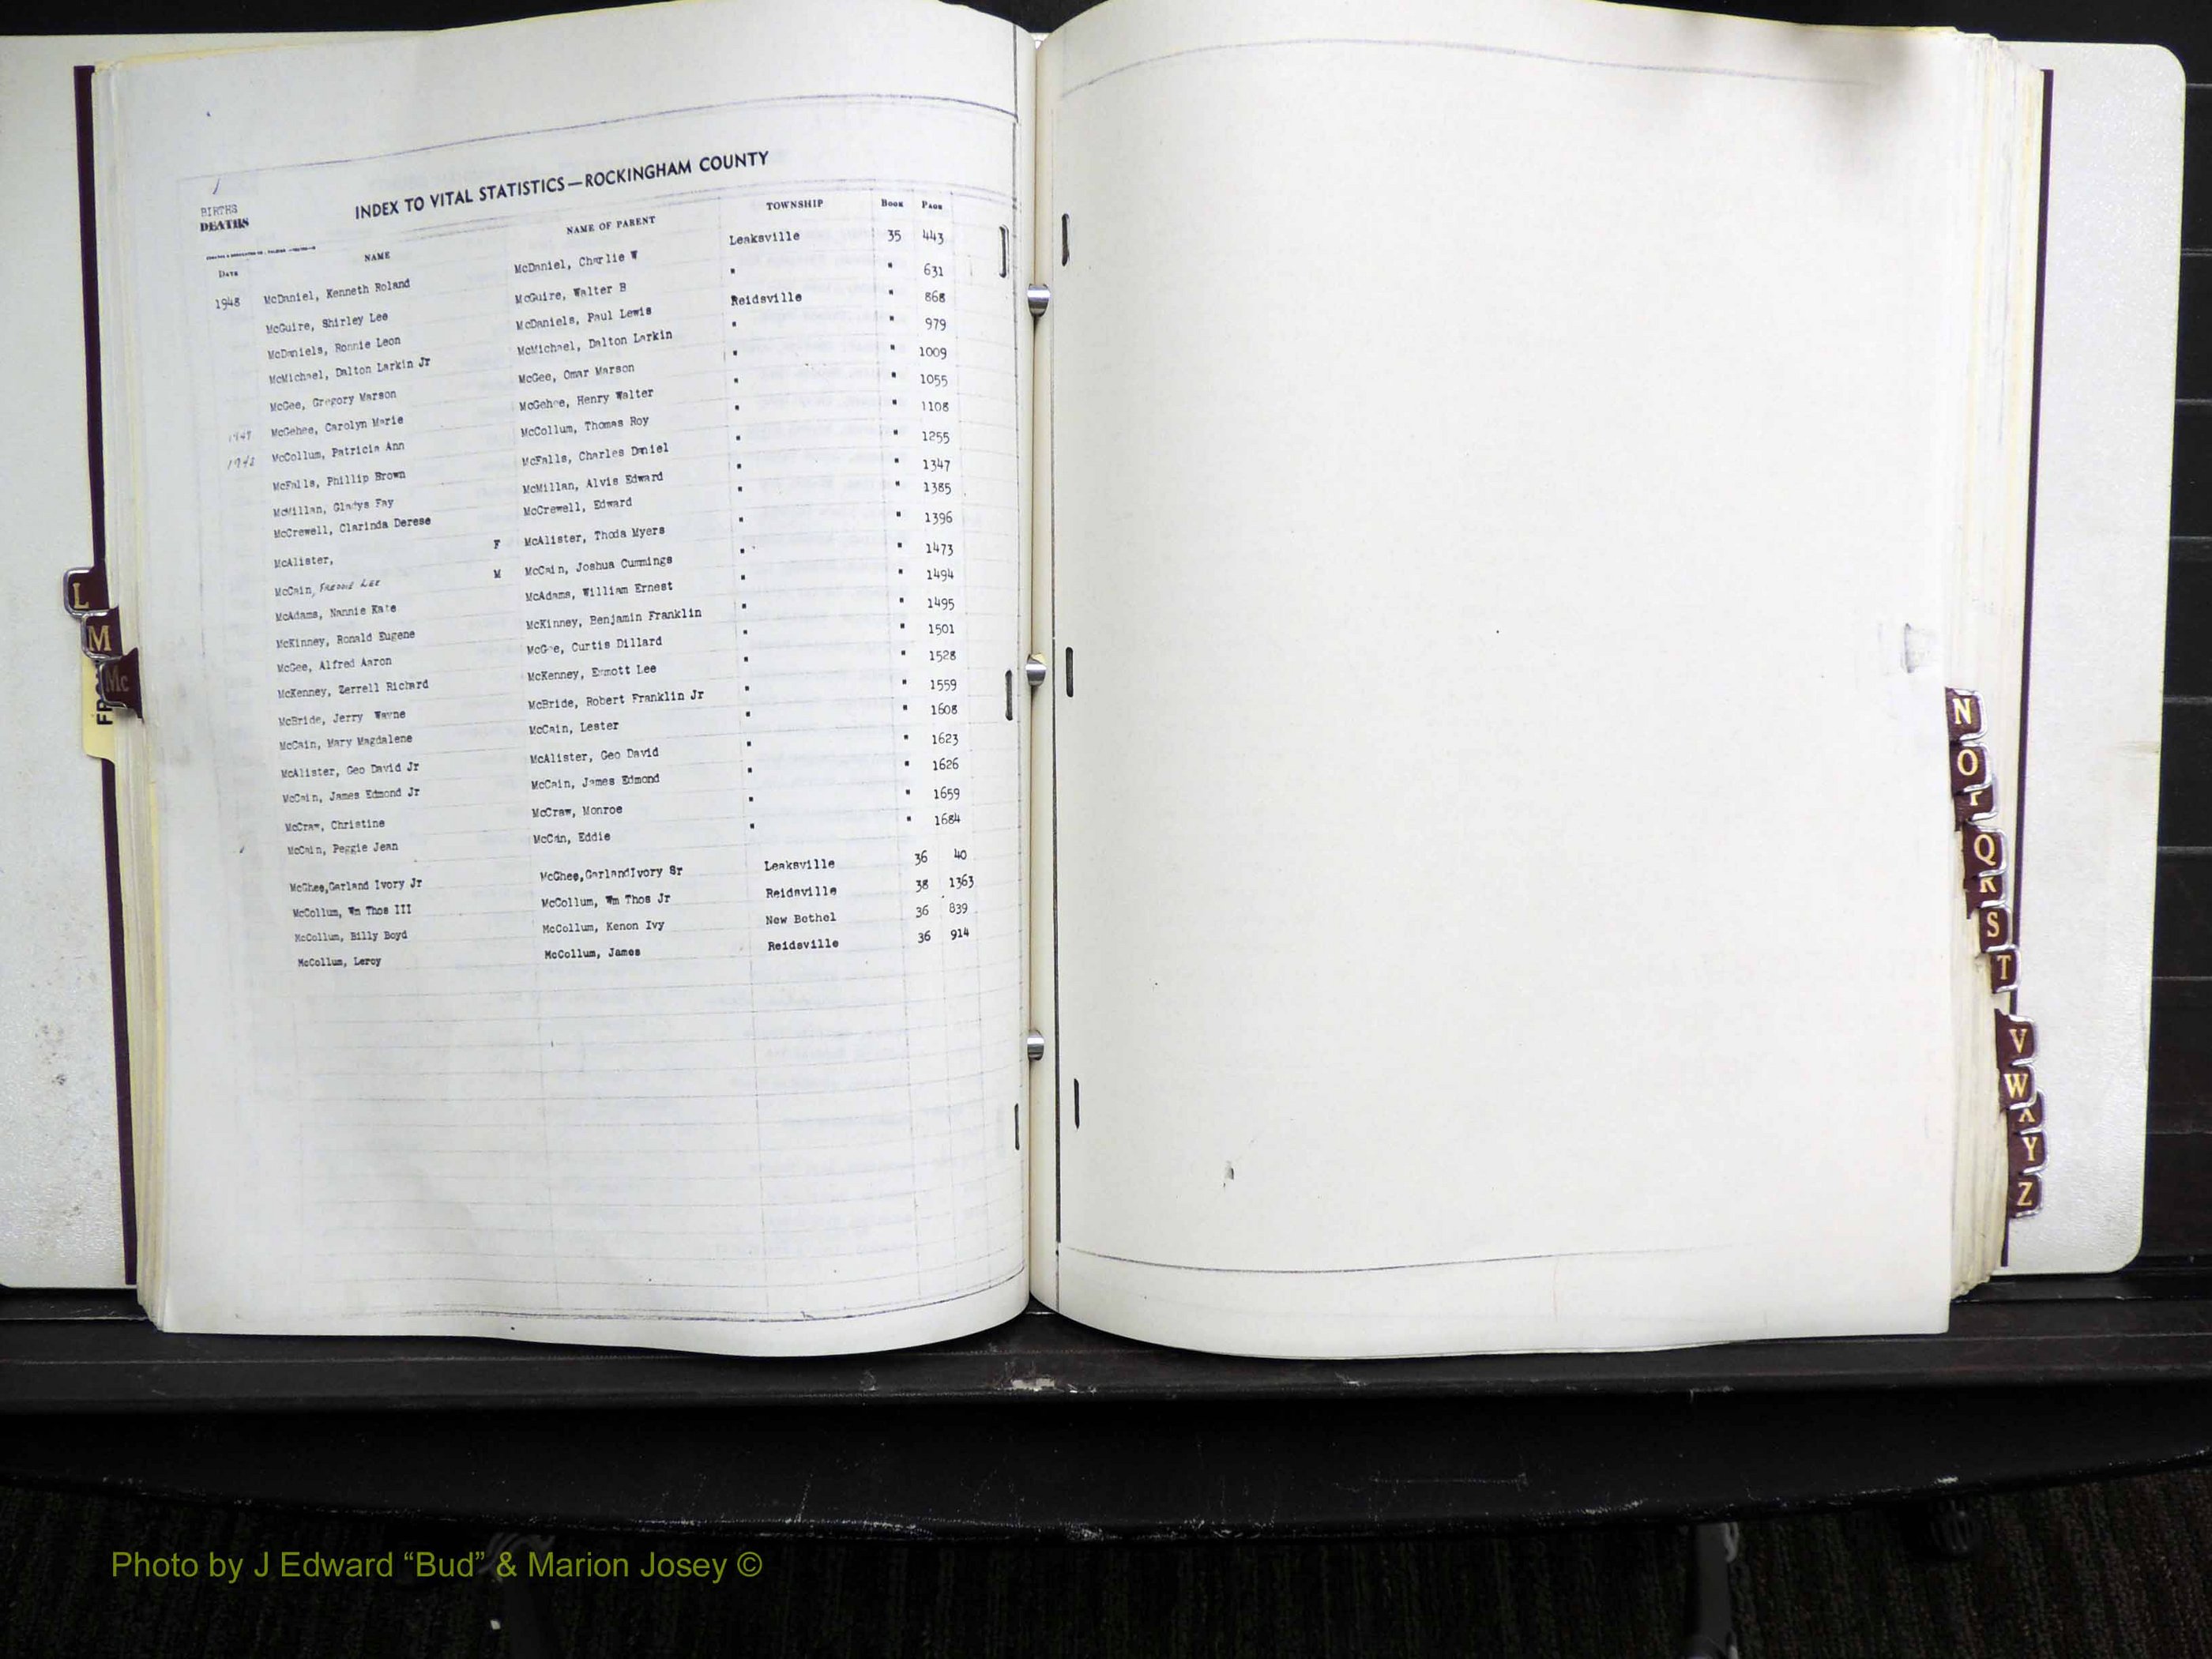 INDEX TO VITAL STATISTICS—ROCKINGHAM COUNTY
BIRTHS
DEATHS
DATE NAME NAME OF PARENT TOWNSHIP BOOK PAGE
1948 McDaniel, Kenneth Roland McDaniel, Charlie W Leaksville 35 443
McGuire, Shirley Lee McGuire, Walter B " " 631
McDaniels, Ronnie Leon McDaniels, Paul Lewis Reidsville " 868
McMichael, Dalton Larkin Jr McMichael, Dalton Larkin " " 979
McGee, Gregory Marson McGee, Omar Marson " " 1009
1947 McGehee, Carolyn Marie McGehee, Henry Walter " " 1055
1948 McCollum, Patricia Ann McCollum, Thomas Roy " " 1108
McFalls, Phillip Brown McFalls, Charles Daniel " " 1255
McMillan, Gladys Fay McMillan, Alvis Edward " " 1347
McCrewell, Clarinda Derese McCrewell, Edward " " 1385
McAlister, F McAlister, Thoda Myers " " 1396
McCain, FREDDIE LEE M McCain, Joshua Cummings " " 1473
McAdams, Nannie Kate McAdams, William Ernest " " 1494
McKinney, Ronald Eugene McKinney, Benjamin Franklin " " 1495
McGee, Alfred Aaron McGee, Curtis Dillard " " 1501
McKenney, Zerrell Richard McKenney, Emmott Lee " " 1528
McBride, Jerry Wayne McBride, Robert Franklin Jr " " 1559
McCain, Mary Magdalene McCain, Lester " " 1608
McAlister, Geo David Jr McAlister, Geo David " " 1623
McCain, James Edmond Jr McCain, James Edmond " " 1626
McCraw, Christine McCraw, Monroe " " 1659
McCain, Peggie Jean McCain, Eddie " " 1684
McGhee,Garland Ivory Jr McGhee,GarlandIvory Sr Leaksville 36 40
McCollum, Wm Thos III McCollum, Wm Thos Jr Reidsville 38 1363
McCollum, Billy Boyd McCollum, Kenon Ivy New Bethel 36 839
McCollum, Leroy McCollum, James Reidsville 36 914
L
M
Mc
N
O
Q
R
S
T
V
W
Y
Z
Photo by J Edward “Bud” & Marion Josey ©